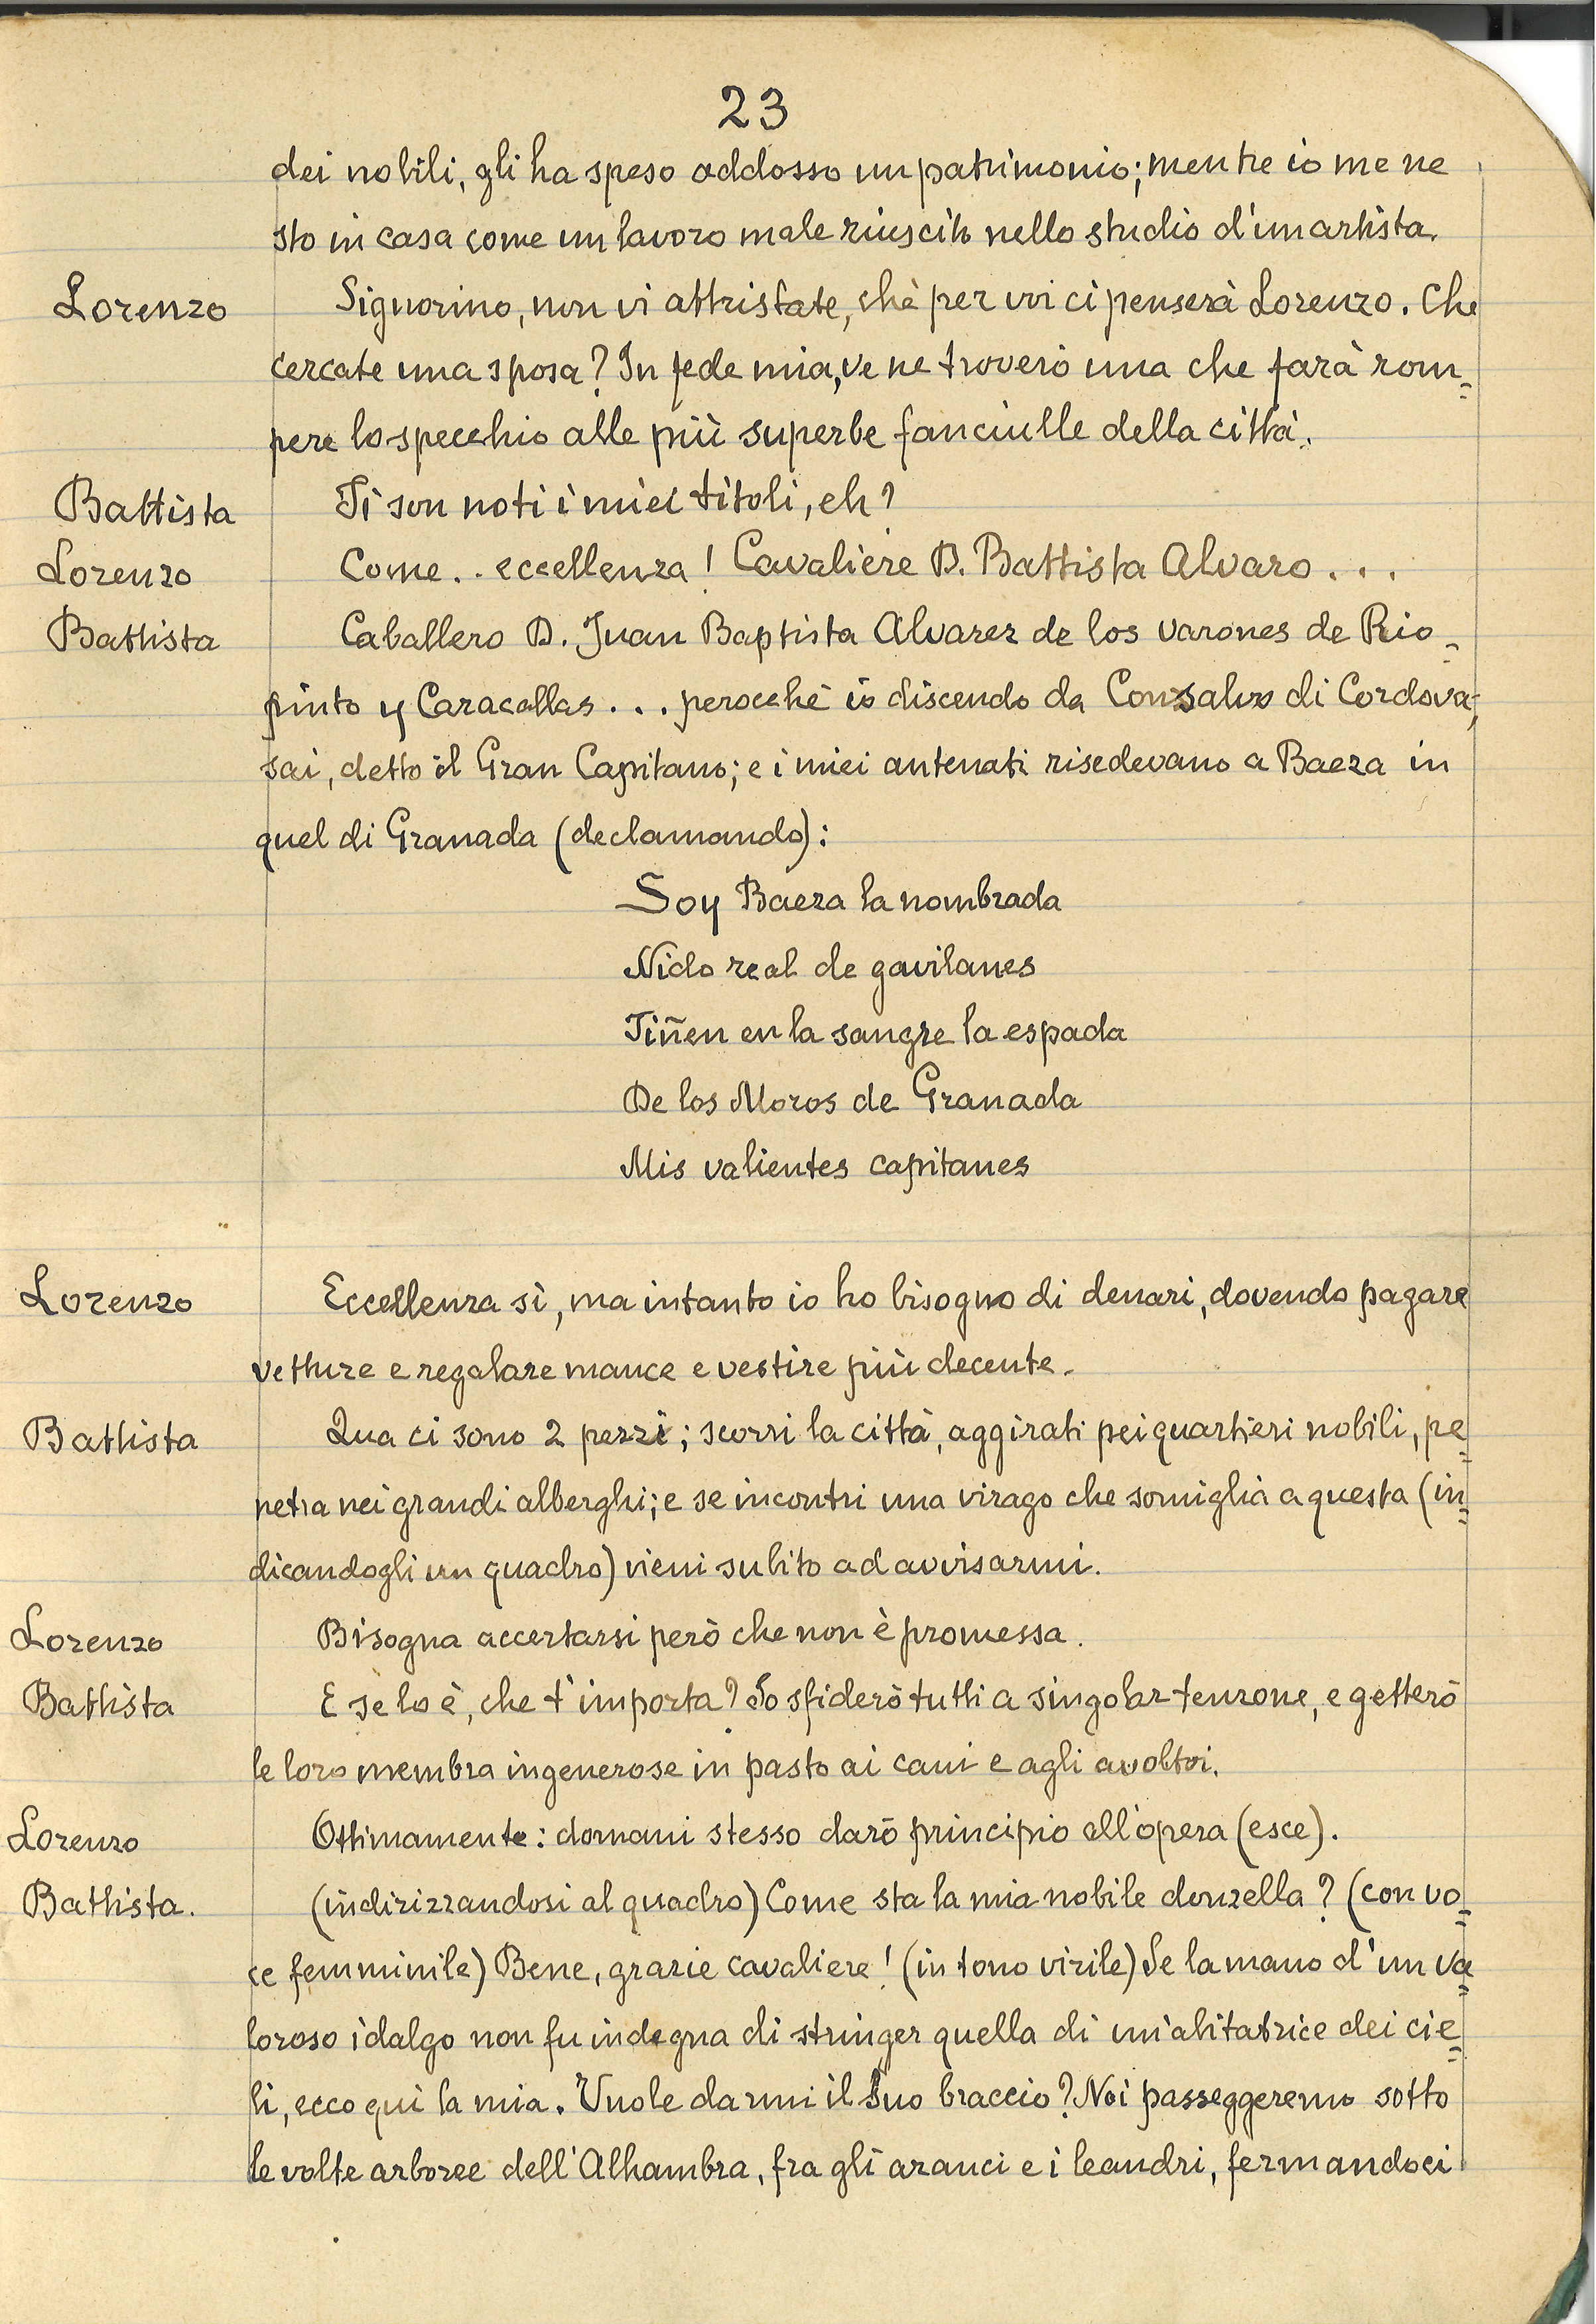 23
dei nobili, gli ha speso addosso un patrimonio; mentre io me ne
sto in casa come un lavoro male riuscito nello studio d'un artista.
Lorenzo Signorino, non vi attristate, chè per voi ci penserà Lorenzo. Che
cercate una sposa? In fede mia, ve ne troverò una che farà rom=
pere lo specchio alle più superbe fanciulle della città.
Battista Ti son noti i miei titoli, eh?
Lorenzo Come.. eccellenza! Cavaliere D. Battista Alvaro...
Battista Caballero D. Juan Baptista Alvarez de los varones de Rio=
pinto y Caracallas... perocchè io discendo da Consalvo di Cordova,
sai, detto il Gran Capitano; e i miei antenati risedevano a Baeza in
quel di Granada (declamando):
Soy Baeza la nombrada
Nido real de gavilanes
Tiñen en la sangre la espada
De los Moros de Granada
Mis valientes capitanes
Lorenzo Eccellenza sì, ma intanto io ho bisogno di denari, dovendo pagare
vetture e regalare mance e vestire più decente.
Battista Qua ci sono 2 pezzi; scorri la città, aggirati pei quartieri nobili, pe=
netra nei grandi alberghi; e se incontri una virago che somiglia a questa (in=
dicandogli un quadro) vieni subito ad avvisarmi.
Lorenzo Bisogna accertarsi però che non è promessa.
Battista E se lo è, che t'importa? Io sfiderò tutti a singolar tenzone, e getterò
le loro membra ingenerose in pasto ai cani e agli avoltoi.
Lorenzo Ottimamente: domani stesso darò principio all'opera (esce).
Battista. (indirizzandosi al quadro) Come sta la mia nobile donzella? (con vo=
ce femminile) Bene, grazie cavaliere! (in tono virile) Se la mano d'un va=
loroso idalgo non fu indegna di stringer quella di un'abitatrice dei cie=
li, ecco qui la mia. Vuole darmi il Suo braccio? Noi passeggeremo sotto
le volte arboree dell'Alhambra, fra gli aranci e i leandri, fermandoci